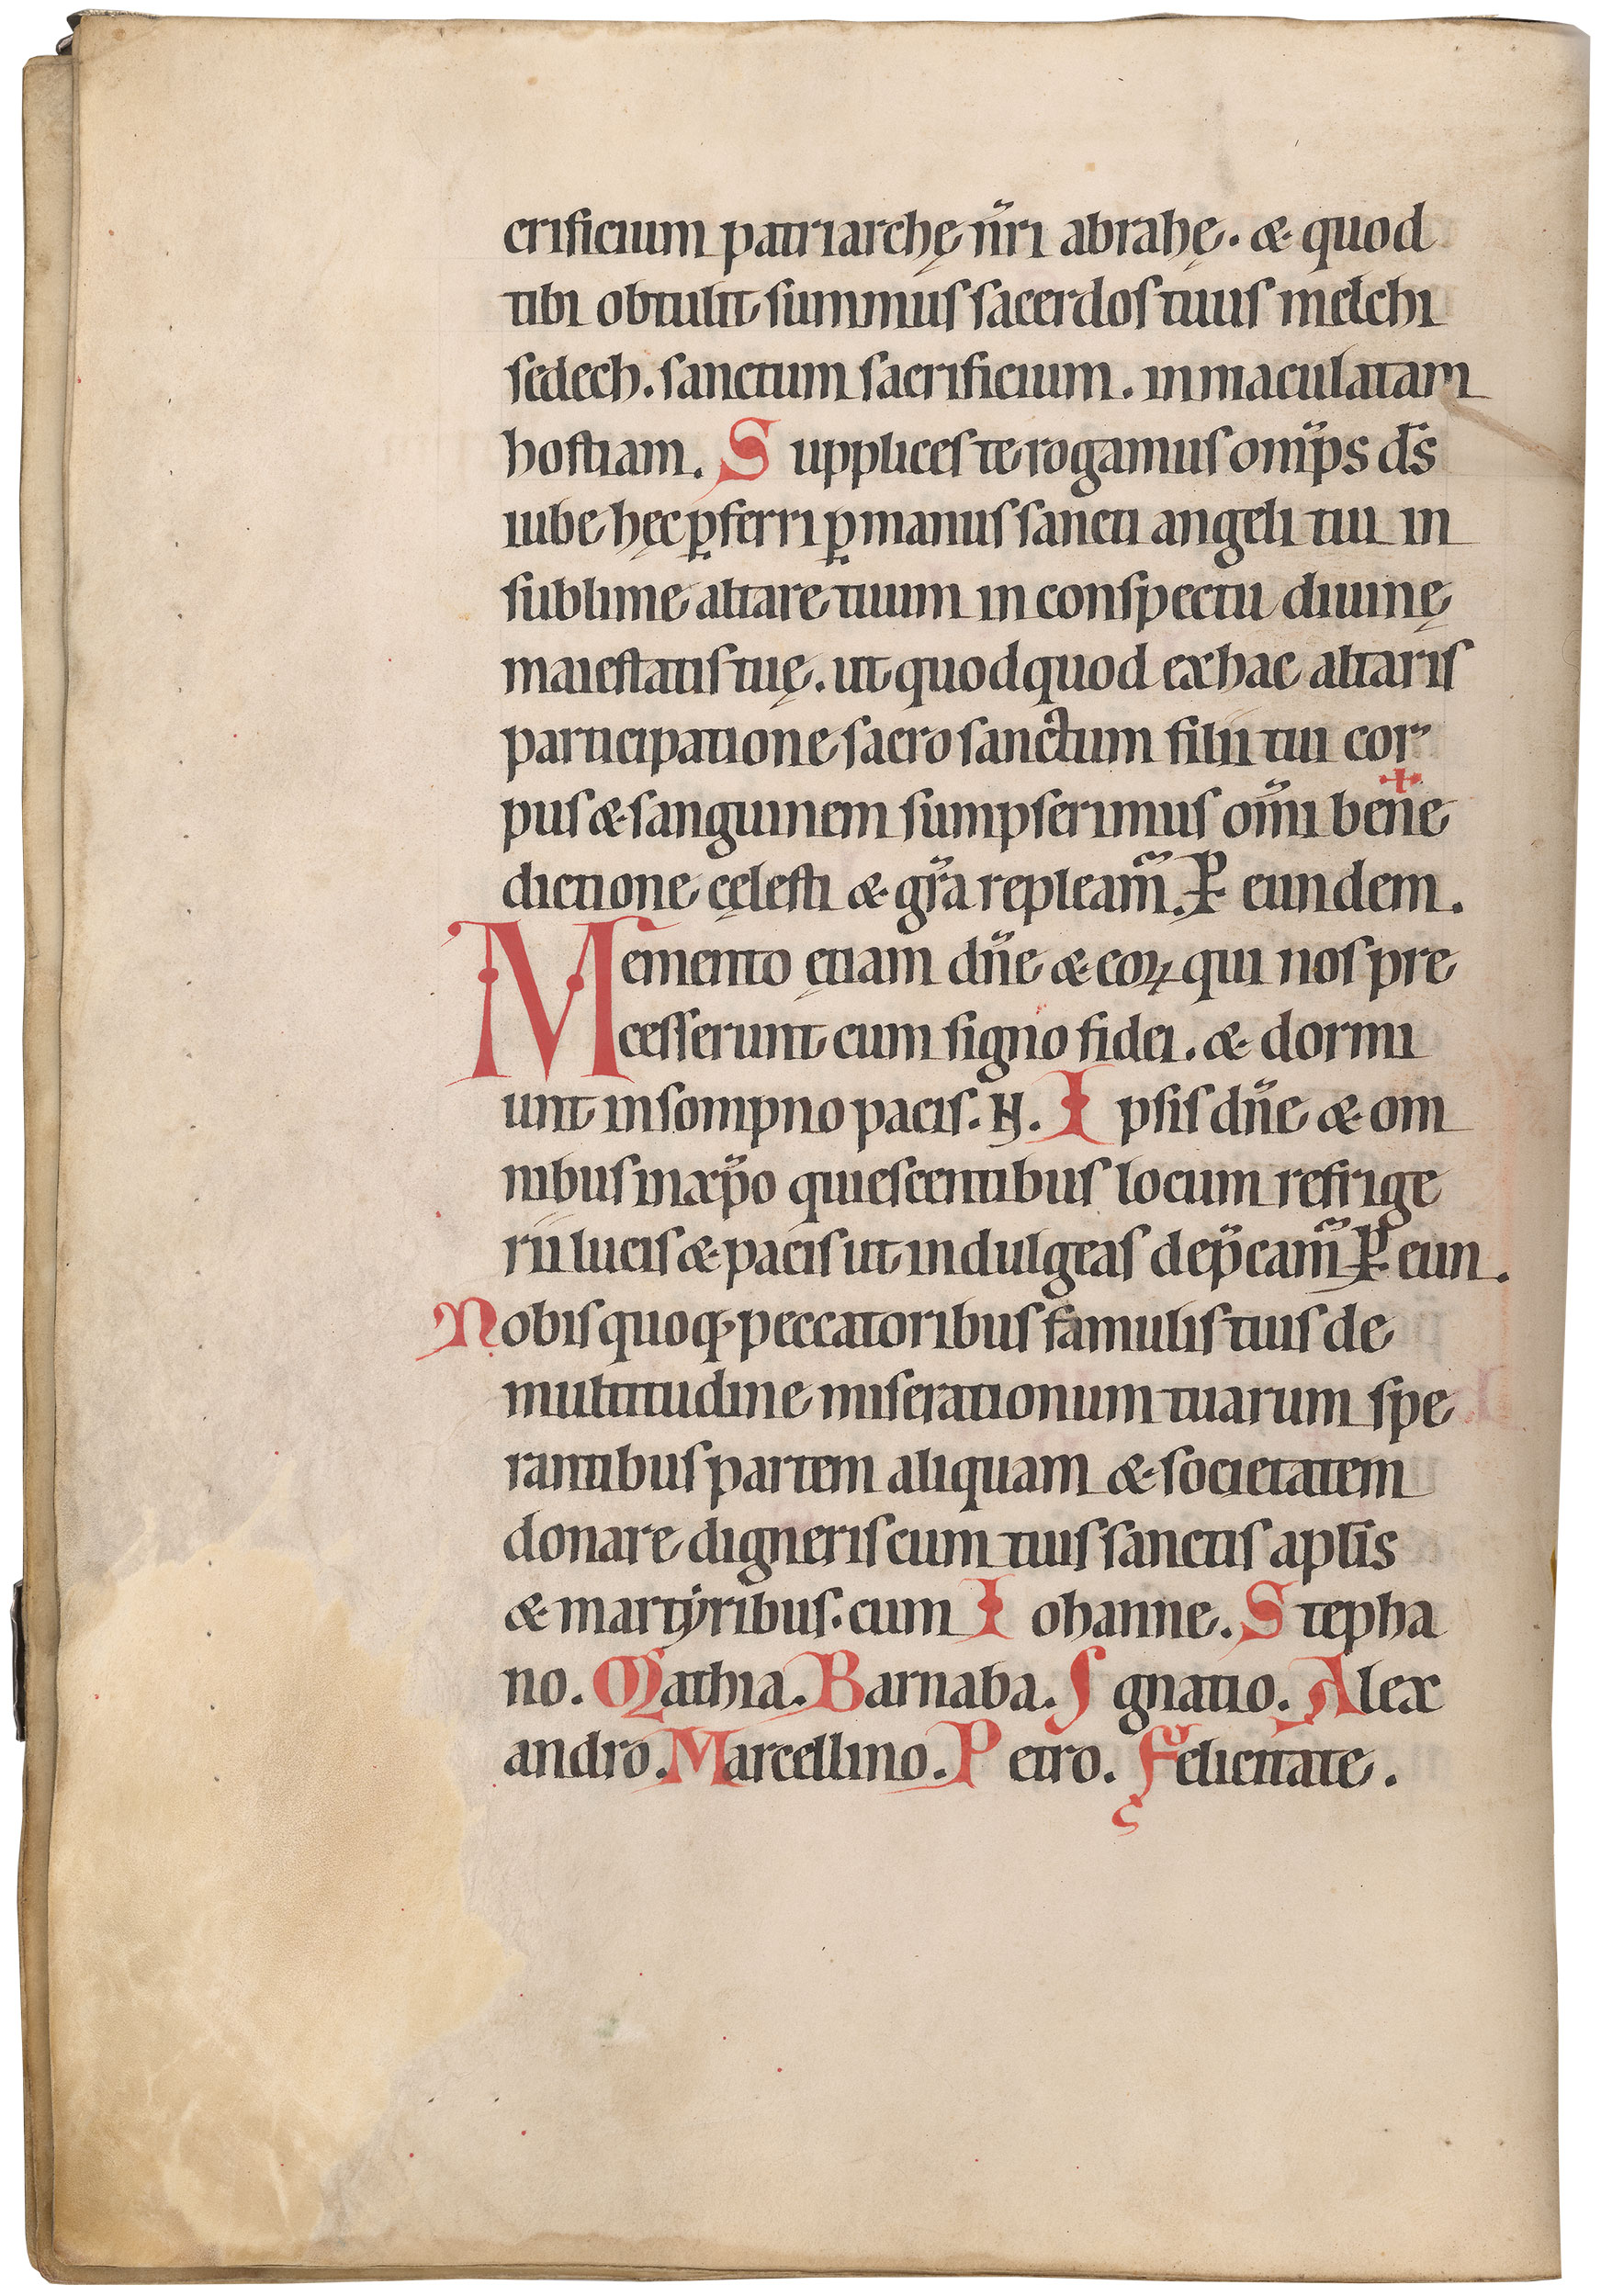 crificium patriarchę nr̄i abrahę. & quod
tibi obtulit summus sacerdos tuus melchi
sedech. sanctum sacrificium. inmaculatam
hostiam. Supplices te rogamus omīps ds̄
iube hęc ꝑferri ꝑ manus sancti angeli tui in
sublime altare tuum in conspectu diuinę
maiestatis tuę. ut quodquod ex hac altaris
participatione sacrosanctum filii tui cor
pus & sanguinem sumpserimus om̄i bene✝
dictione cęlesti & gr̄a repleam̄. P̲ eundem.
Memento ęciam dn̄e & eoꝝ qui nos pre
cesserunt cum signo fidei. & dormi
unt in sompno pacis. N̄. Ipsis dn̄e & om
nibus in xp̄o quiescentibus locum refrige
rii lucis & pacis ut indulgeas dep̄cam̄ P̲ eun.
Nobis quoqꝫ peccatoribus famulis tuis de
multitudine miserationum tuarum spe
rantibus partem aliquam & societatem
donare digneris cum tuis sanctis apl̄is
& martyribus. cum Iohanne. Stepha
no. Mathia. Barnaba. Ignatio. Alex
andro. Marcellino. Petro. Felicitate.